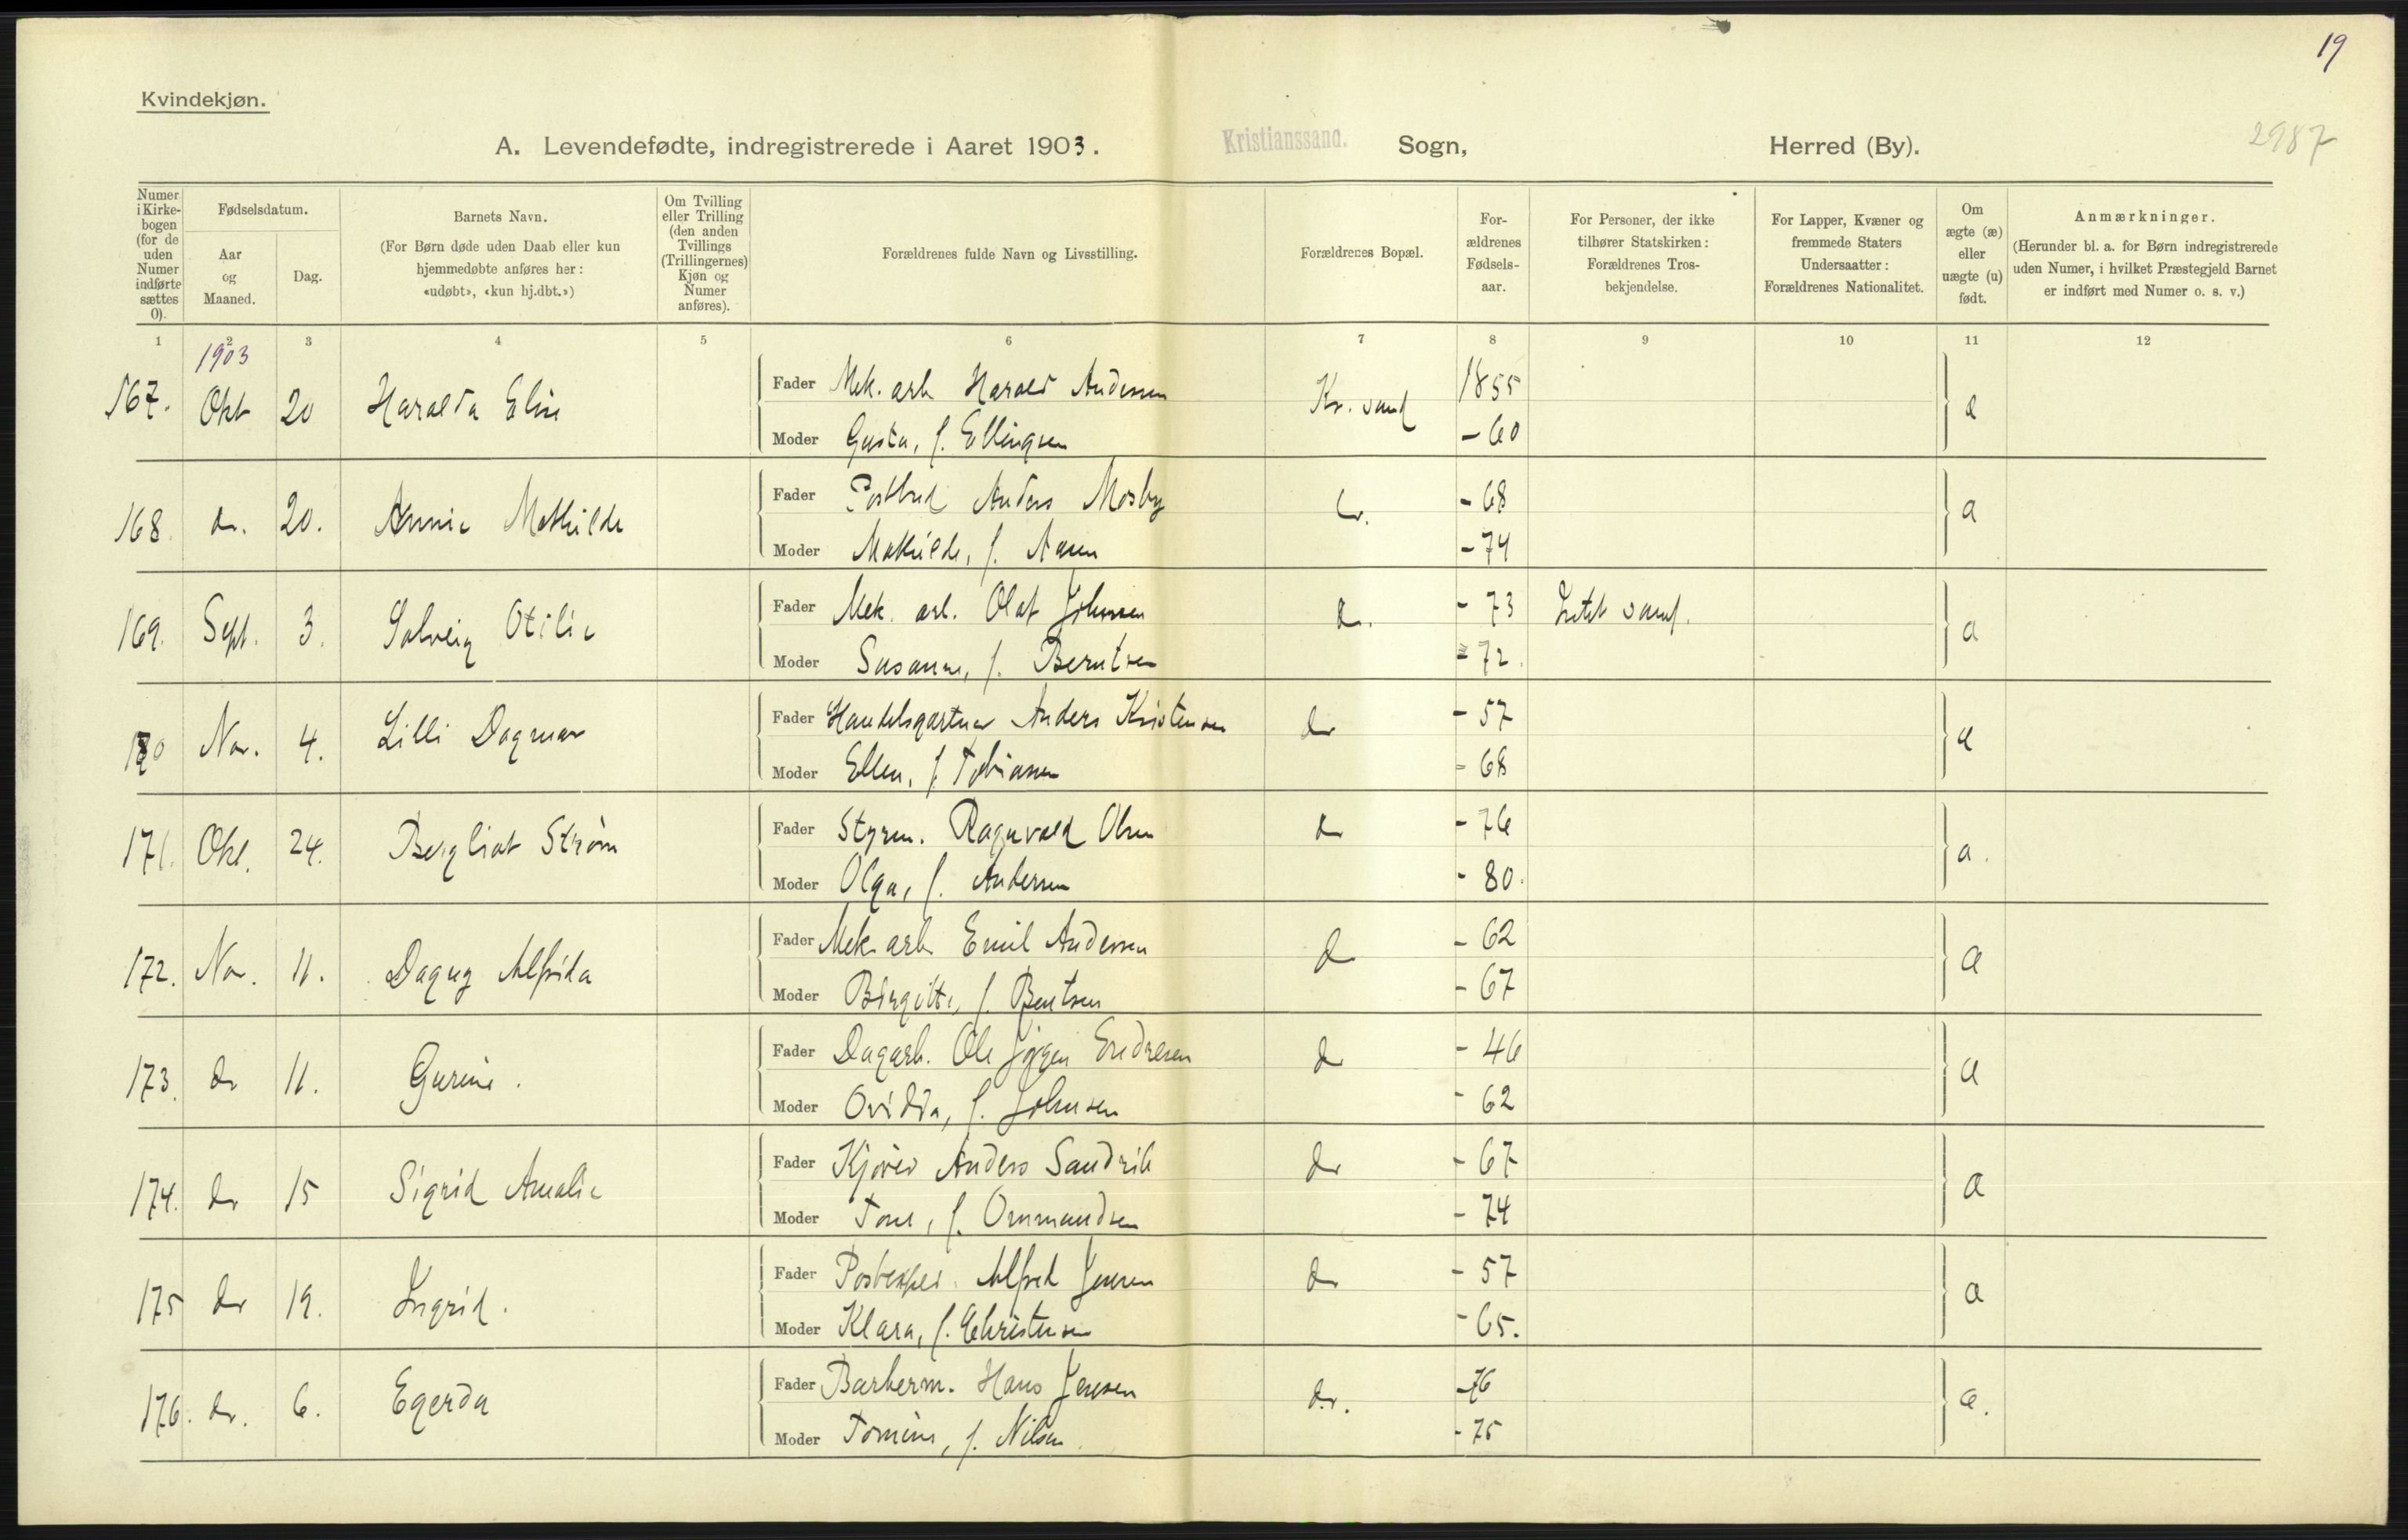 19
Kvindekjøn.
A. Levendefødte, indregistrerede i Aaret 1903. Kristianssand. Sogn, Herred (By). 2987
Numer i Kirke-bogen (for de uden Numer indførte sættes 0).
Fødselsdatum.
Aar og Maaned.
Dag.
Barnets Navn.
(For Børn døde uden Daab eller kun
hjemmedøbte anføres her:
«udøbt», «kun hj.dbt.»)
Om Tvilling
eller Trilling
(den anden
Tvillings
(Trillingernes)
Kjøn og
Numer
anføres).
Forældrenes fulde Navn og Livsstilling.
Forældrenes Bopæl.
For-
ældrenes
Fødsels-
aar.
For Personer, der ikke
tilhører Statskirken:
Forældrenes Tros-
bekjendelse.
For Lapper, Kvæner og
fremmede Staters
Undersaatter:
Forældrenes Nationalitet.
Om
ægte (æ)
eller
uægte (u)
født.
Anmærkninger.
(Herunder bl. a. for Børn indregistrerede
uden Numer, i hvilket Præstegjeld Barnet
er indført med Numer o. s. v.)
1 2 3 4 5 6 7 8 9 10 11 12
1903
167. Okt 20 Haralda Elise Fader Mek. arb Harald Andersen Kr. sand 1855 æ
Moder Gusta, f. Ellingsen - 60
168. do. 20. Annie Mathilde Fader Postbud Anders Mosby do. - 68 æ
Moder Mathilde, f. Aasen - 74
169. Sept. 3. Solveig Otilie Fader Mek. arb. Olaf Johnsen do. - 73 Intet samf. æ
Moder Susanne, f. Berntsen - 72.
170 Nov. 4. Lilli Dagmar Fader Handelsgartner Anders Kristensen do - 57 æ
Moder Ellen, f. Tobiasen - 68
171. Okt. 24. Bergliot Strøm Fader Styrm. Ragnvald Olsen do - 76 æ.
Moder Olga, f. Andersen - 80.
172. Nov. 11. Dagny Alfrida Fader Mek arb Emil Andersen do - 62 æ
Moder Birgitte, f. Bentsen - 67
173. do 11. Gurine. Fader Dagarb. Ole Jørgen Endresen do - 46 æ
Moder Ovidia, f. Johnsen - 62
174. do 15 Sigrid Amalie Fader Kjører Anders Sandrib do - 67 æ
Moder Tone, f. Ommundsen - 74
175 do 19. Ingrid. Fader Postexped. Alfred Jensen do - 57 æ
Moder Klara, f. Christensen - 65.
176. do. 6. Egerda Fader Barberm. Hans Jensen do. -76 æ.
Moder Tomine, f. Nilsen. - 75